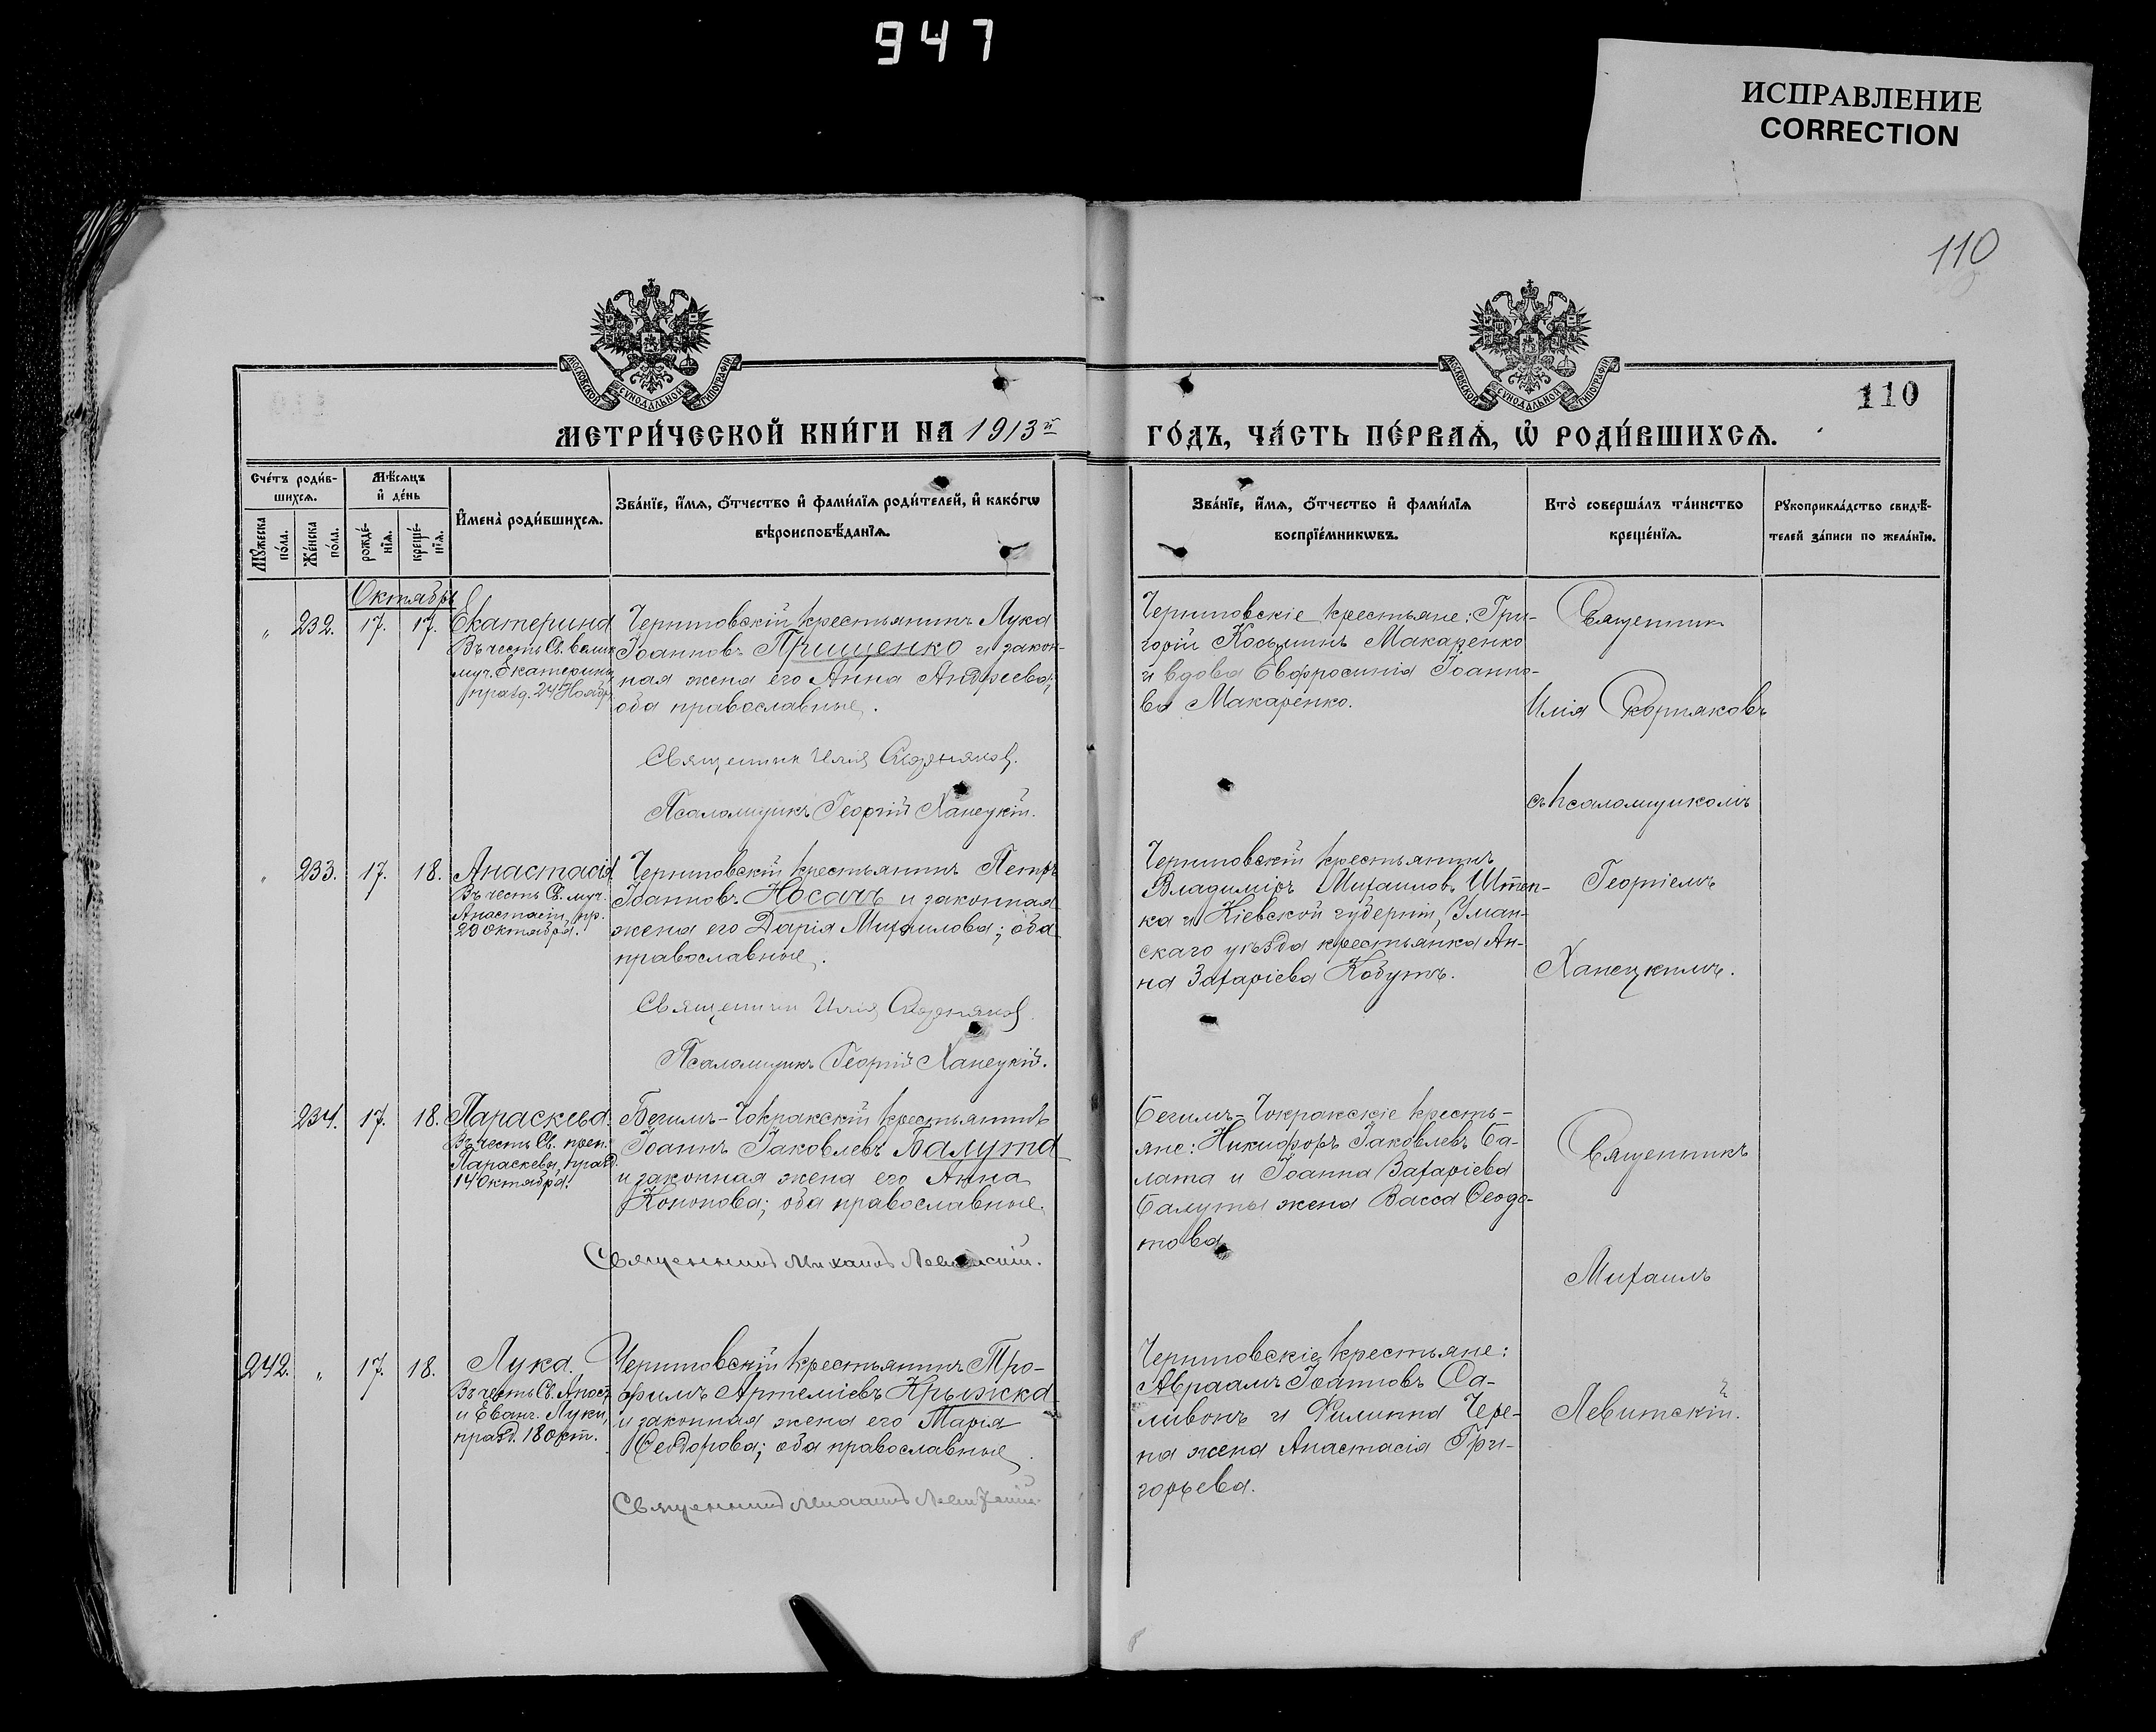 947
ИСПРАВЛЕНИЕ
CORRECTION
110
МОСКОВСКОЙ СѴНОДАЛЬНОЙ ТИПОГРАФІИ
МОСКОВСКОЙ СѴНОДАЛЬНОЙ ТИПОГРАФІИ
110
МЕТРИ́ЧЕСКОЙ КНИ́ГИ НА 1913й
ГО́ДЪ, ЧА́СТЬ ПЕ́РВАѦ, Ѡ҆ РОДИ́ВШИХСѦ.
Сче́тъ роди́в-
шихсѧ.
Мꙋ́жеска
по́ла.
Же́нска
по́ла.
Мѣ́сѧцъ
и҆ де́нь
рожде́-
нїѧ.
креще́-
нїѧ.
И҆мена̀ роди́вшихсѧ.
Зва́нїе, и҆́мѧ, ѻ҆́тчество и҆ фами́лїѧ роди́телей, и҆ како́гѡ
вѣроисповѣ́данїѧ.
Зва́нїе, и҆́мѧ, ѻ҆́тчество и҆ фами́лїѧ
воспрїе́мникѡвъ.
Кто̀ соверша́лъ та́инство
креще́нїѧ.
Рꙋкоприкла́дство свидѣ́-
телей за́писи по жела́нїю.
Октябрь
„ 232. 17. 17. Екатерина
Въ честь Св. велик
муч. Екатерины
празд. 24 Ноябр.
Черниговскій крестьянинъ Лука
Іоанновъ Прищенко и закон-
ная жена его Анна Андреева;
оба православные.
Священник Илія Скорняков.
Псаломщикъ Георгій Ханецкій.
Черниговскіе крестьяне: Гри-
горій Косьминъ Макаренко
и вдова Евфросинія Іоанно-
ва Макаренко.
Священник
Илія Скорняковъ
съ псаломщикомъ
Георгіемъ
Ханецкимъ.
„ 233. 17. 18. Анастасія
Въ честь Св. муч.
Анастасіи, пр.
29 Октября.
Черниговскій крестьянинъ Петръ
Іоанновъ Носачъ и законная
жена его Дарія Михаилова; оба
православные.
Священник Илія Скорняков.
Псаломщикъ Георгій Ханецкій.
Черниговскій крестьянинъ
Владиміръ Михаиловъ Штеп-
ка и Кіевской губерніи, Уман-
скаго уѣзда крестьянка Ан-
на Захаріева Кобутъ.
234. 17. 18. Параскева.
Въ честь Св. преп.
Параскевы, празд.
14 Октября.
Бегимъ-Чокракскій крестьянинъ
Іоаннъ Іаковлевъ Балута
и законная жена его Анна
Кононова; оба православные.
Священникъ Михаилъ Левитскій.
Бегимъ-Чокракскіе кресть-
яне: Никифоръ Іаковлевъ Ба-
лата и Іоанна Захаріева
Балуты жена Васса Ѳеодо-
това
Священникъ
Михаилъ
Левитскій.
242. „ 17. 18. Лука.
Въ честь Св. Апост.
и Еванг. Луки,
празд. 18 Окт.
Черниговскій крестьянинъ Тро-
фимъ Артеміевъ Крыжка
и законная жена его Марія
Ѳеодорова; оба православные.
Священникъ Михаилъ Левитскій.
Черниговскіе крестьяне:
Авраамъ Іоанновъ Са-
ливонъ и Филиппа Чере-
па жена Анастасія Гри-
горьева.